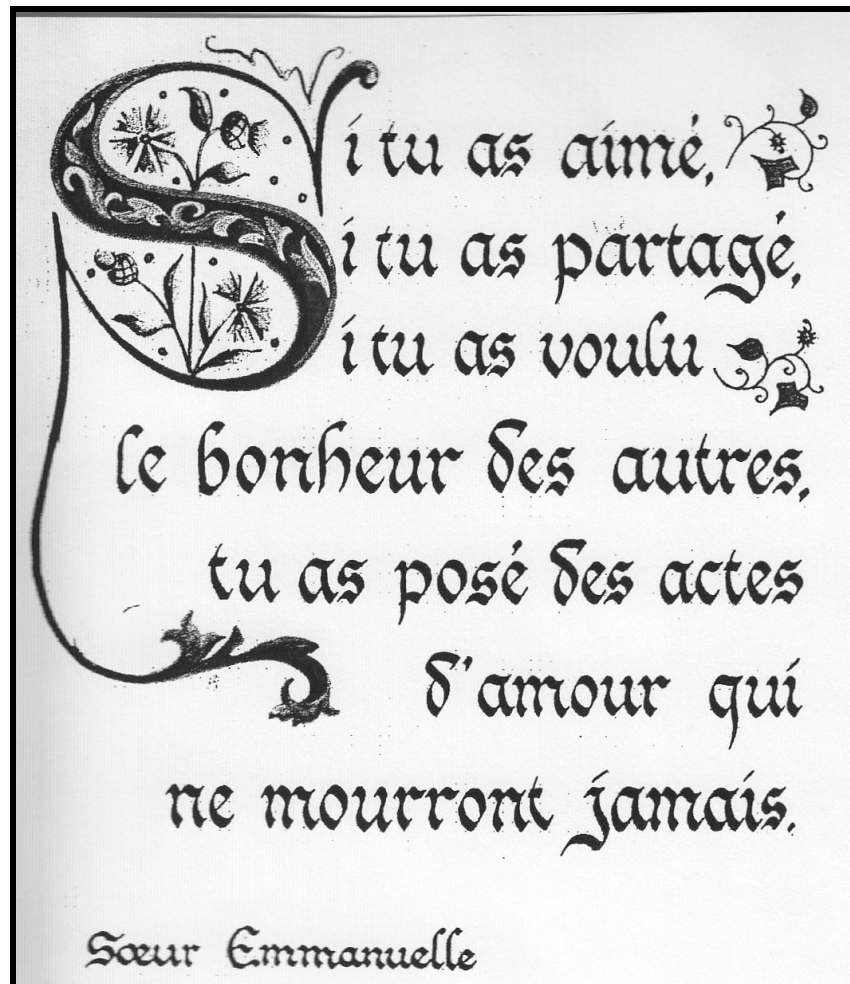 Si tu as aimé,
Si tu as partagé,
Si tu as voulu
le bonheur des autres,
tu as posé des actes
d'amour qui
ne mourront jamais.
Sœur Emmanuelle